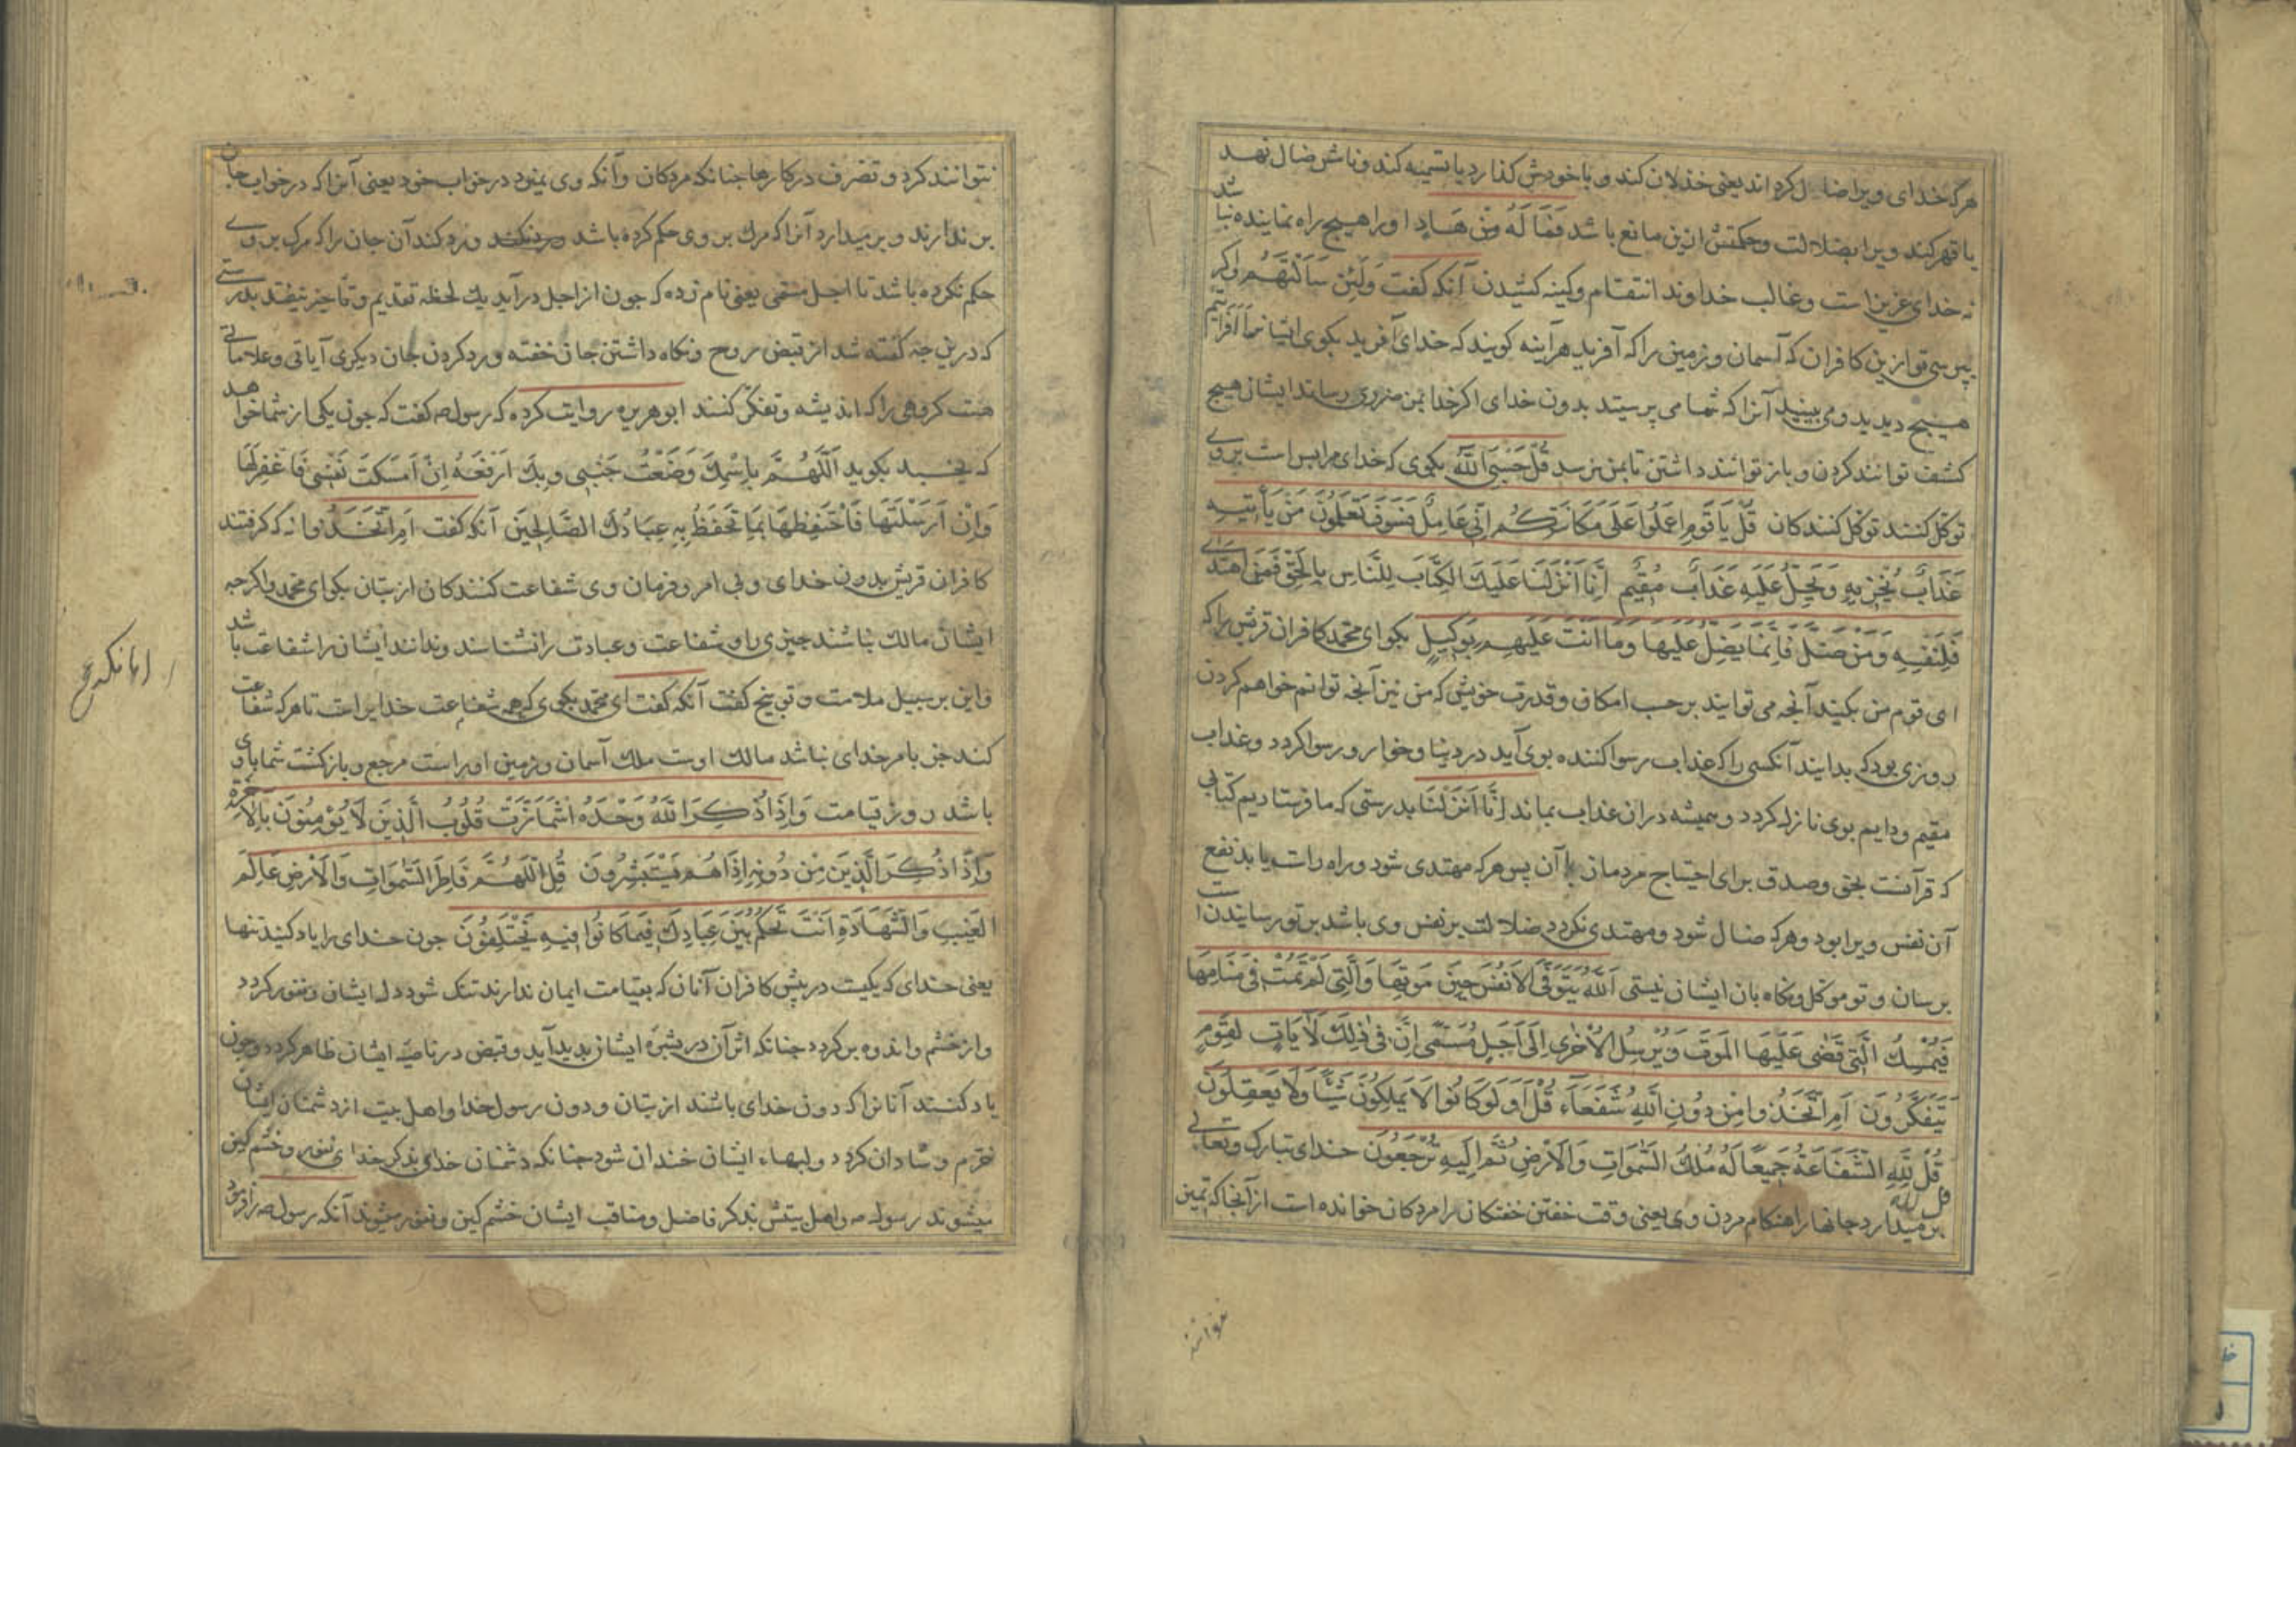 هرکه خدای ویرا ضال کرداند یعنی خذلان کند و با خودش کذارد یا تسمیه کند و نامش ضال نهد
یا قهر کند ویرا بضلالت و حکمتش ازین مانع باشد فَمَا لَهُ مِنْ هَادٍ او را هیچ راه نماینده نباشد
نه خدای عزیز است و غالب خداوند انتقام و کینه کشیدن آنکه کفت وَلَئِن سَأَلْتَهُم و اکر
بپرسی تو ازین کافران که آسمان و زمین را که آفرید هرآینه کویند که خدای آفرید بکوی ایشانرا أَفَرَأَيْتُم
هیچ دیدید و می بینید آنرا که شما می پرستید بدون خدای اکر خدا بمن ضرری رساند ایشان هیچ
کشف توانند کردن و باز توانند داشتن تا بمن نرسد قُلْ حَسْبِيَ اللَّهُ بکوی که خدای مرا بس است بر وی
توکل کنند توکل کنندکان قُلْ يَا قَوْمِ اعْمَلُوا عَلَى مَكَانَتِكُمْ إِنِّي عَامِلٌ فَسَوْفَ تَعْلَمُونَ مَن يَأْتِيهِ
عَذَابٌ يُخْزِيهِ وَيَحِلُّ عَلَيْهِ عَذَابٌ مُقِيمٌ إِنَّا أَنْزَلْنَا عَلَيْكَ الْكِتَابَ لِلنَّاسِ بِالْحَقِّ فَمَنِ اهْتَدَى
فَلِنَفْسِهِ وَمَنْ ضَلَّ فَإِنَّمَا يَضِلُّ عَلَيْهَا وَمَا أَنْتَ عَلَيْهِمْ بِوَكِيلٍ بکو ای محمد کافران قریش را که
ای قوم من بکنید آنجه می توانید بر حسب امکان و قدرت خویش که من نیز آنجه توانم خواهم کردن
روزی بود که بدانید آنکسی را که عذاب رسوا کننده بوی آید در دینا و خوار و رسوا کردد و عذاب
مقیم و دایم بوی نازل کردد و همیشه دران عذاب بماند إِنَّا أَنْزَلْنَا بدرستی که ما فرستادیم کتابی
که قرآنست بحق و صدق برای احتیاج مردمان با آن پس هرکه مهتدی شود و راه راست یابد نفع
آن نفس ویرا بود و هرکه ضال شود و مهتدی نکردد ضلالت بر نفس وی باشد بر تو رسانیدنست
برسان و تو موکل و نکاه بان ایشان نیستی اَللَّهُ يَتَوَفَّى الْأَنْفُسَ حِينَ مَوْتِهَا وَالَّتِي لَمْ تَمُتْ فِي مَنَامِهَا
فَيُمْسِكُ الَّتِي قَضَى عَلَيْهَا الْمَوْتَ وَيُرْسِلُ الْأُخْرَى إِلَى أَجَلٍ مُسَمًّى إِنَّ فِي ذَلِكَ لَآيَاتٍ لِقَوْمٍ
يَتَفَكَّرُونَ أَمِ اتَّخَذُوا مِنْ دُونِ اللَّهِ شُفَعَاءَ قُلْ أَوَلَوْ كَانُوا لَا يَمْلِكُونَ شَيْئًا وَلَا يَعْقِلُونَ
قُلْ لِلَّهِ الشَّفَاعَةُ جَمِيعًا لَهُ مُلْكُ السَّمَوَاتِ وَالْأَرْضِ ثُمَّ إِلَيْهِ تُرْجَعُونَ خدای تبارک و تعالی
قل لله
بر میدارد جانها را هنکام مردن وی یعنی وقت خفتن خفتکان را مردکان خوانده است از آنجا که تمیز
نتوانند کرد و تصرف در کارها جنانکه مردکان و آنکه وی نمیرد در خواب خود یعنی آنرا که در خواب جان
بر ندارند و بر میدارد آنرا که مرک بر وی حکم کرده باشد و رد کند آن جان را که مرک بر وی
حکم نکرده باشد تا اجل مسمی یعنی نام زده که جون از اجل درآید یک لحظه تقدیم و تاخیر نیفتد بدرستی
که درین جه کفته شد از قبض روح و نکاه داشتن جان خفته و رد کردن جان دیکری آیاتی و علاماتی
هست کروهی را که اندیشه و تفکر کنند ابوهریره روایت کرده که رسول ص کفت که جون یکی از شما خواهد
که بخسبد بکوید اَللَّهُمَّ بِاسْمِكَ وَضَعْتُ جَنْبِي وَبِكَ أَرْفَعُهُ إِنْ أَمْسَكْتَ نَفْسِي فَاغْفِرْ لَهَا
وَإِنْ أَرْسَلْتَهَا فَاحْفَظْهَا بِمَا تَحْفَظُ بِهِ عِبَادَكَ الصَّالِحِينَ آنکه کفت أَمِ اتَّخَذُوا نه که کرفتند
کافران قریش بدون خدای و بی امر و فرمان وی شفاعت کنندکان از بتان بکو ای محمد واکرجه
ایشان مالک نباشند جیزی را و شفاعت و عبادت را نشناسند و ندانند ایشان را شفاعت باشد
و این بر سبیل ملامت و توبیخ کفت آنکه کفت ای محمد بکوی که همه شفاعت خدایراست تا هرکه شفاعت
کند جز بامر خدای نباشد مالک اوست ملک آسمان و زمین اوراست مرجع و بازکشت شما با وی
باشد روز قیامت وَإِذَا ذُكِرَ اللَّهُ وَحْدَهُ اشْمَأَزَّتْ قُلُوبُ الَّذِينَ لَا يُؤْمِنُونَ بِالْآخِرَةِ
وَإِذَا ذُكِرَ الَّذِينَ مِنْ دُونِهِ إِذَا هُمْ يَسْتَبْشِرُونَ قُلِ اللَّهُمَّ فَاطِرَ السَّمَوَاتِ وَالْأَرْضِ عَالِمَ
الْغَيْبِ وَالشَّهَادَةِ أَنْتَ تَحْكُمُ بَيْنَ عِبَادِكَ فِيمَا كَانُوا فِيهِ يَخْتَلِفُونَ جون خدای را یاد کنید تنها
یعنی خدای که یکیست در پیش کافران آنان که بقیامت ایمان ندارند تنک شود دل ایشان و نفور کردد
و از خشم و اندوه بر کردد جنانکه اثر آن در بشره ایشان پدید آید و قبض در ناصیه ایشان ظاهر کردد و جون
یاد کنند آنانرا که دون خدای باشند از بتان و دون رسول خدا و اهل بیت از دشمنان ایشان
خرم و شادان کردد و لبهاء ایشان خندان شود جنانکه دشمنان خدای بذکر خدای نفور و خشم کین
میشوند رسول ص و اهل بیتش بذکر فاضل و مناقب ایشان خشم کین و نفور میشوند آنکه رسول ص را فرمود